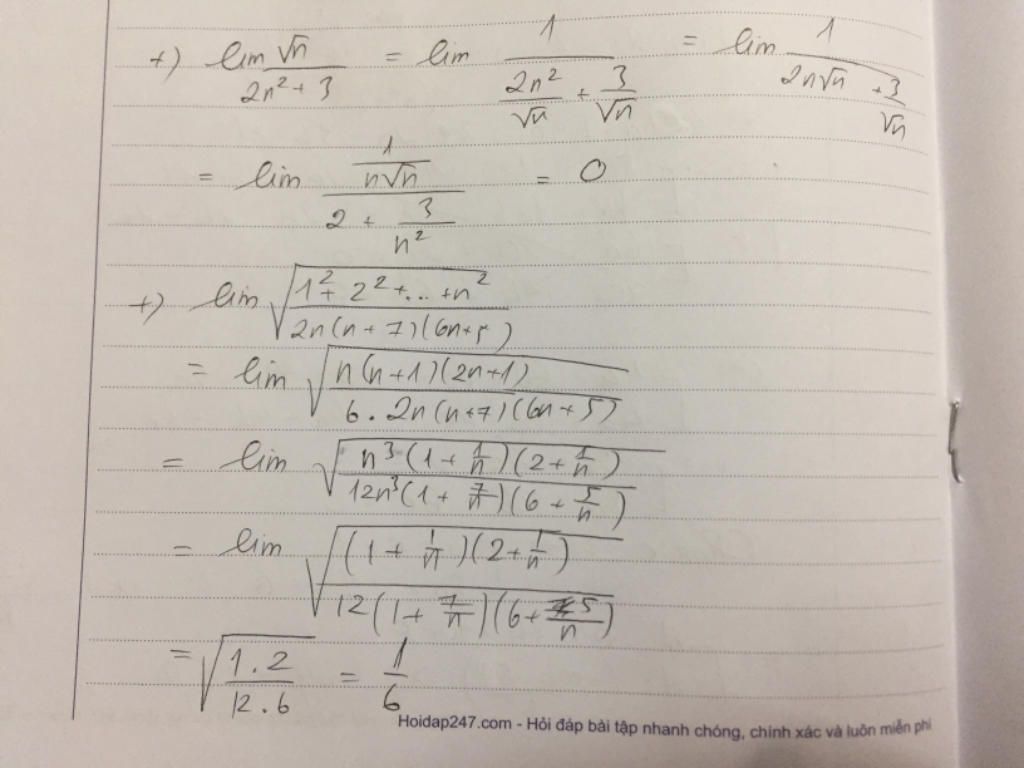 +) lim √n / (2n² + 3) = lim 1 / (2n²/√n + 3/√n) = lim 1 / (2n√n + 3/√n)
= lim (1/(n√n)) / (2 + 3/n²) = 0
+) lim √((1² + 2² + ... + n²) / (2n(n+7)(6n+5)))
= lim √((n(n+1)(2n+1)) / (6.2n(n+7)(6n+5)))
= lim √((n³(1 + 1/n)(2 + 1/n)) / (12n³(1 + 7/n)(6 + 5/n)))
= lim √(((1 + 1/n)(2 + 1/n)) / (12(1 + 7/n)(6 + 5/n)))
= √((1.2) / (12.6)) = 1/6
Hoidap247.com - Hỏi đáp bài tập nhanh chóng, chính xác và luôn miễn phí